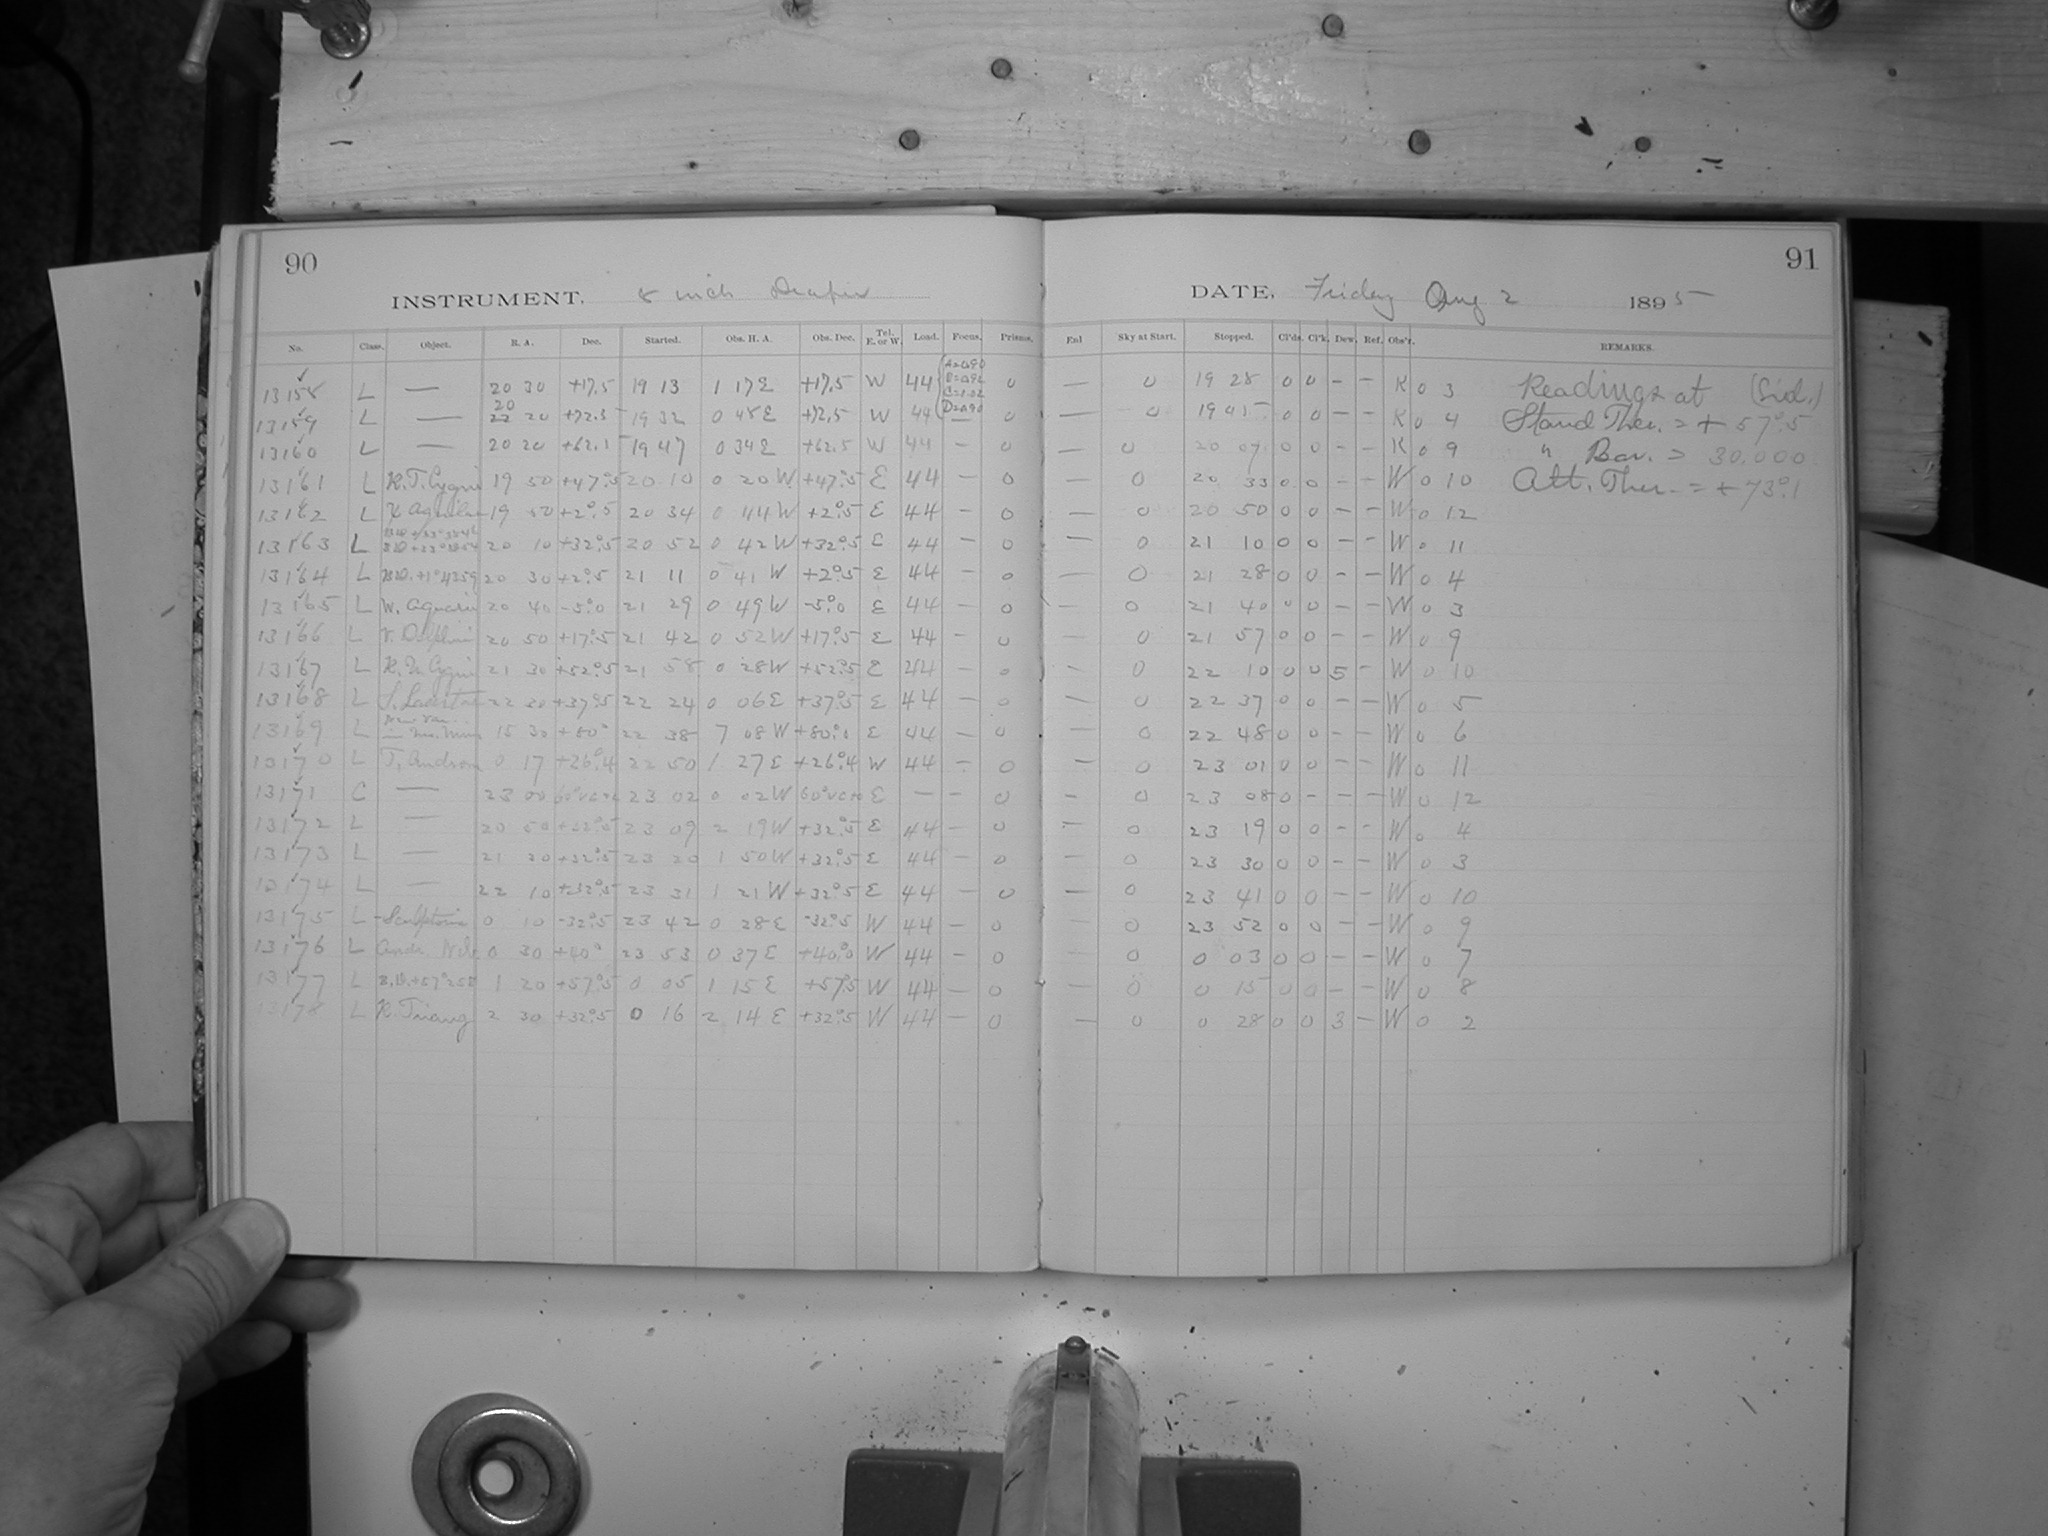 90
INSTRUMENT, 8 inch Draper
No. Class. Object. R. A. Dec. Started. Obs. H. A. Obs. Dec. Tel. E. or W. Load. Focus. Prisms.
13158 L — 20 30 +17.5 19 13 1 17E +17.5 W 44 0
13159 L — 20 20 +72.5 19 32 0 48E +72.5 W 44 — 0
13160 L — 20 20 +62.5 19 47 0 34E +62.5 W 44 - 0
13161 L R.T. Cygni 19 50 +47°.5 20 10 0 20 W +47°.5 E 44 - 0
13162 L 19 50 +2°.5 20 34 0 44 W +2°.5 E 44 - 0
13163 L 20 10 +32°.5 20 52 0 42 W +32°.5 E 44 - 0
13164 L B.D. +1°4359 20 30 +2°.5 21 11 0 41 W +2°.5 E 44 - 0
13165 L W. Aquarii 20 40 -5°.0 21 29 0 49 W -5°.0 E 44 - 0
13166 L V. Delphini 20 50 +17°.5 21 42 0 52 W +17°.5 E 44 - 0
13167 L Cygni 21 30 +52°.5 21 58 0 28 W +52°.5 E 44 - 0
13168 L S. Lacertae 22 30 +37°.5 22 24 0 06 E +37°.5 E 44 - 0
13169 L 15 30 +80° 22 38 7 08 W +80°.0 E 44 - 0
13170 L T. Androm 0 17 +26°.4 22 50 1 27 E +26°.4 W 44 - 0
13171 C — 23 00 23 02 0 02 W E — - 0
13172 L — 20 50 +32°.5 23 09 2 19 W +32°.5 E 44 - 0
13173 L — 21 30 +32°.5 23 20 1 50 W +32°.5 E 44 - 0
13174 L — 22 10 +32°.5 23 31 1 21 W +32°.5 E 44 - 0
13175 L - Sculptoris 0 10 -32°.5 23 42 0 28 E -32°.5 W 44 - 0
13176 L Andr. Neb. 0 30 +40° 23 53 0 37 E +40°.0 W 44 - 0
13177 L B.D. +57°258 1 20 +57°.5 0 05 1 15 E +57°.5 W 44 - 0
13178 L R. Triang 2 30 +32°.5 0 16 2 14 E +32°.5 W 44 - 0
91
DATE, Friday Aug 2 1895
Enl Sky at Start. Stopped. Cl'ds. Cl'k. Dew. Ref. Obs'r. REMARKS.
— 0 19 28 0 0 - - K 0 3 Readings at (Sid.)
— 0 19 45 0 0 - - K 0 4 Stand Ther. = + 57°.5
— 0 20 07 0 0 - - K 0 9 " Bar. = 30.000
— 0 20 33 0 0 - - W 0 10 Att. Ther. = + 73°.1
— 0 20 50 0 0 - - W 0 12
— 0 21 10 0 0 - - W 0 11
— 0 21 28 0 0 - - W 0 4
— 0 21 40 0 0 - - W 0 3
— 0 21 57 0 0 - - W 0 9
— 0 22 10 0 0 5 - W 0 10
— 0 22 37 0 0 - - W 0 5
— 0 22 48 0 0 - - W 0 6
— 0 23 01 0 0 - - W 0 11
- 0 23 08 0 - - - W 0 12
— 0 23 19 0 0 - - W 0 4
— 0 23 30 0 0 - - W 0 3
— 0 23 41 0 0 - - W 0 10
— 0 23 52 0 0 - - W 0 9
— 0 0 03 0 0 - - W 0 7
— 0 0 15 0 0 - - W 0 8
— 0 0 28 0 0 3 - W 0 2